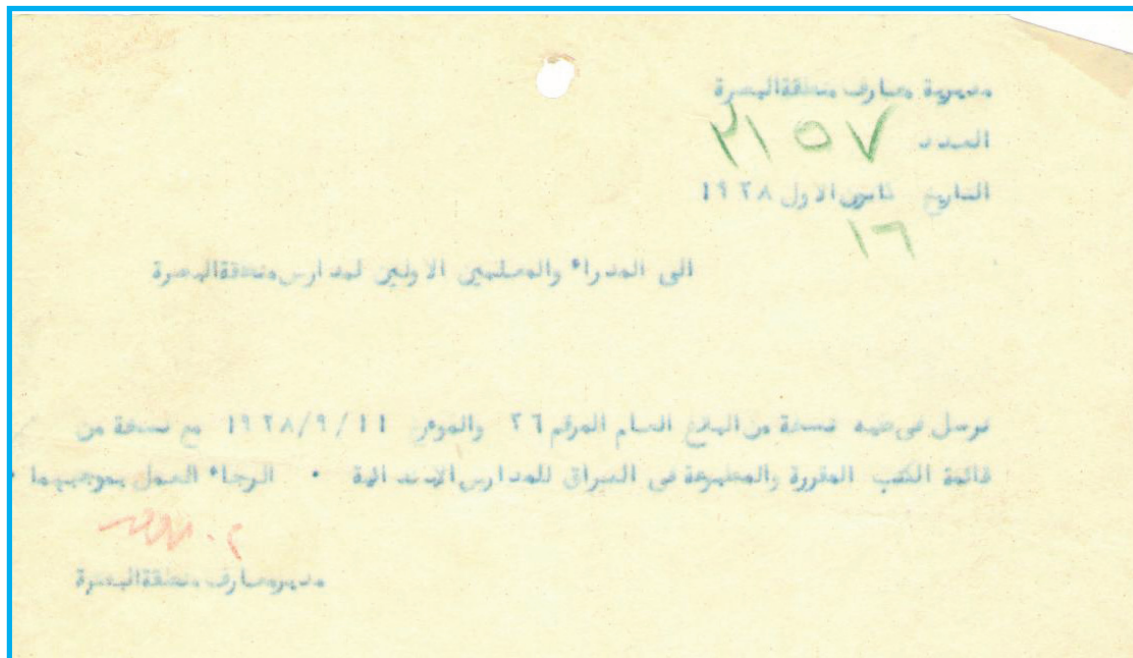 مديرية معارف منطقة البصرة
العدد ٣١٥٧
التاريخ تشرين الاول ١٩٢٨
١٦
الى المدراء والمعلمين الاولين لمدارس منطقة البصرة
نرسل في طيه نسخة من البلاغ العام المرقم ٢٦ والمؤرخ ١٩٢٨/٩/١١ مع نسخة من
قائمة الكتب المقررة والمطبوعة في العراق للمدارس الابتدائية ٠ الرجاء العمل بموجبهما ٠
مدير معارف منطقة البصرة